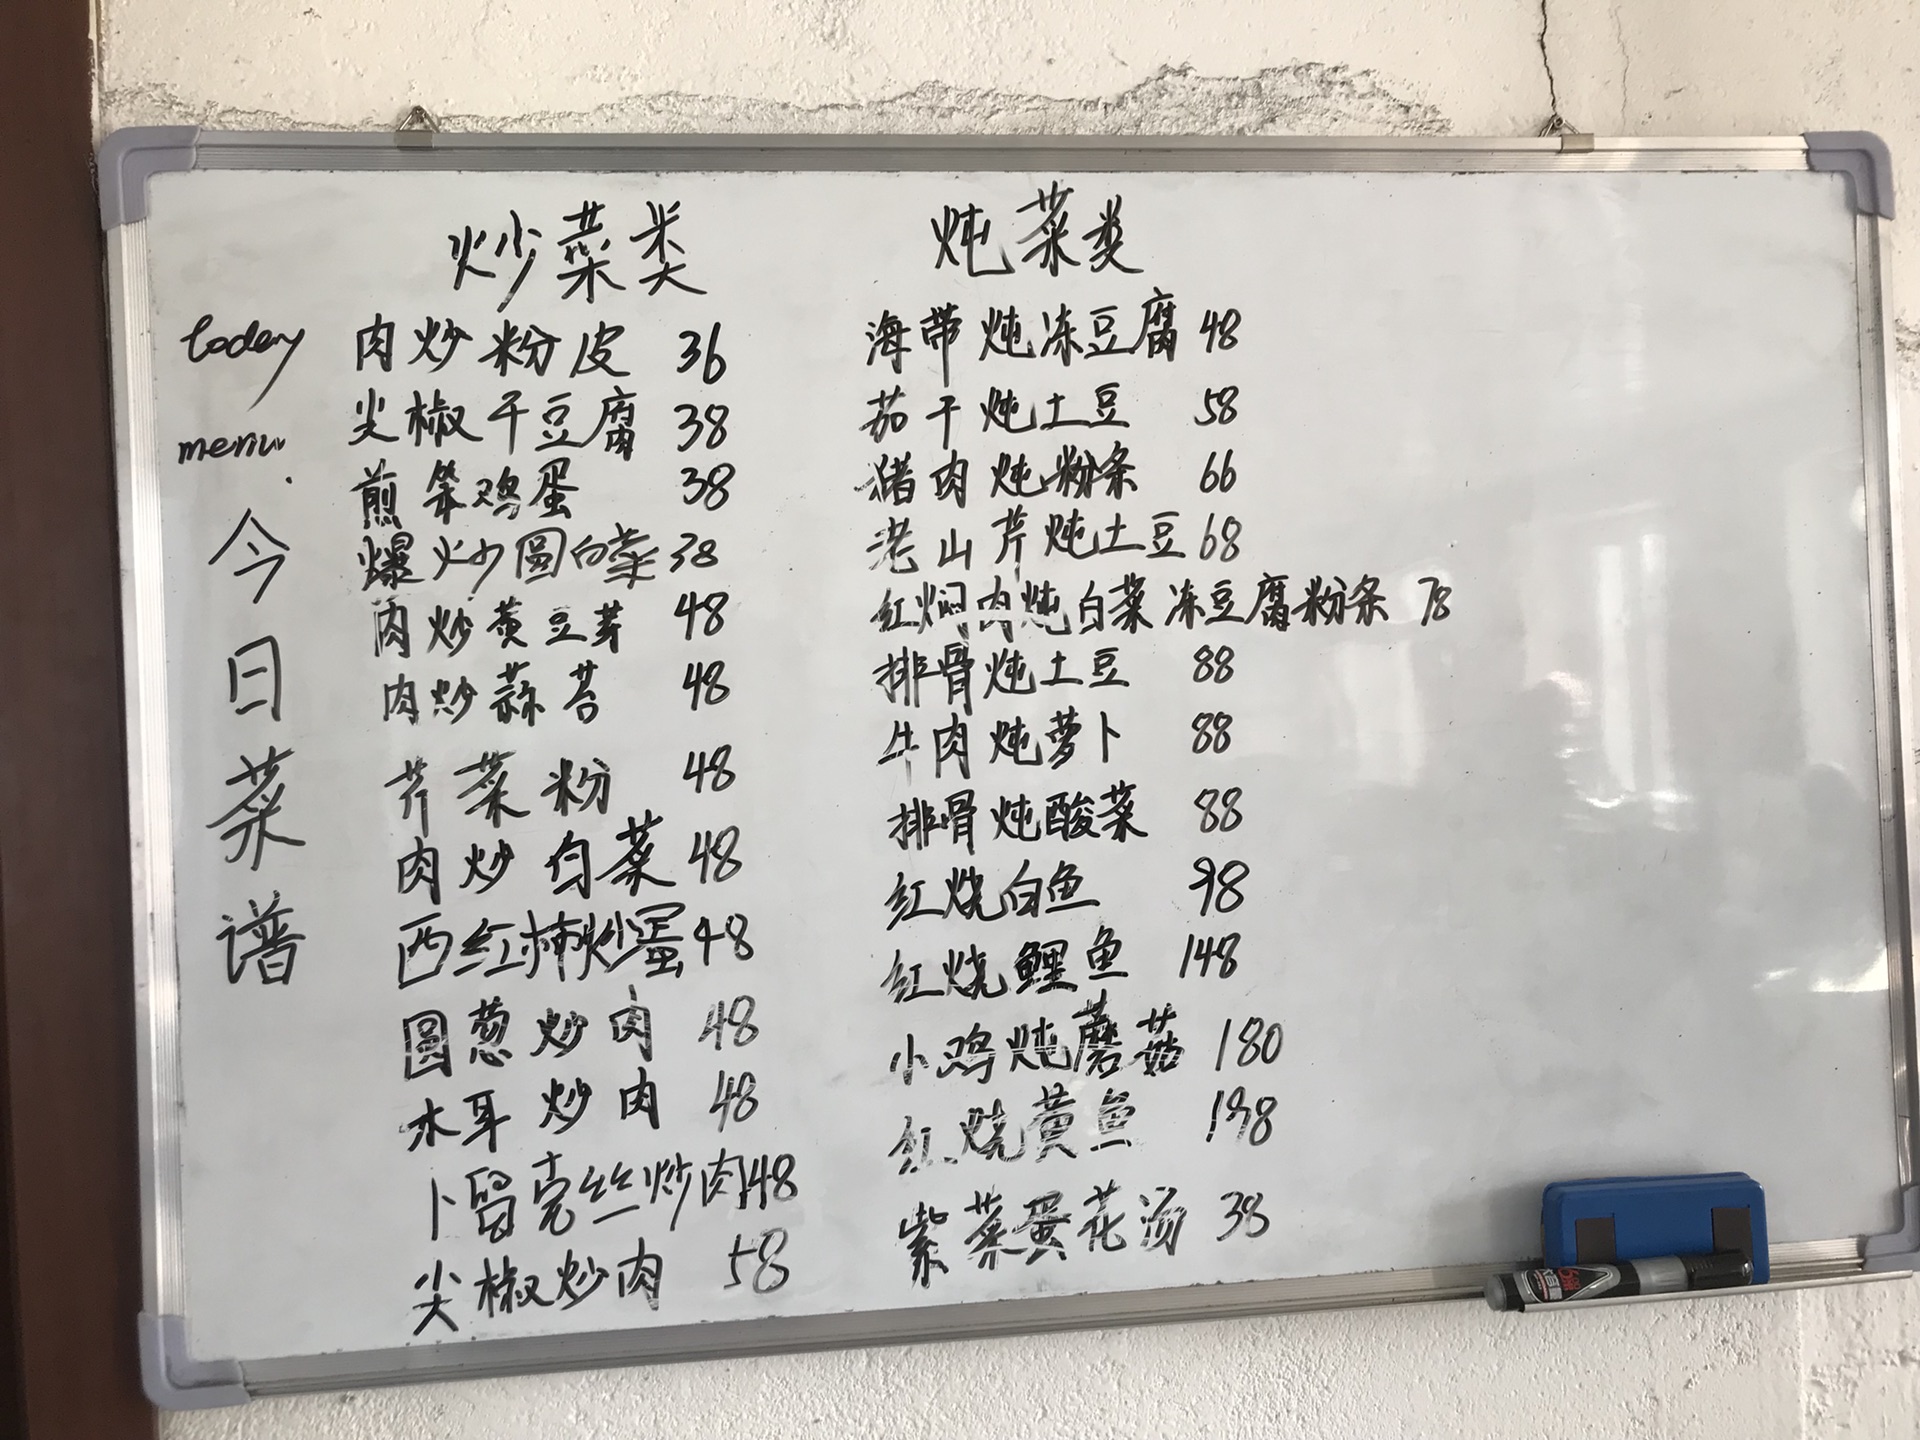 today
menu
今日菜谱
炒菜类
肉炒粉皮 36
尖椒干豆腐 38
煎笨鸡蛋 38
爆炒圆白菜 38
肉炒黄豆芽 48
肉炒蒜苔 48
芹菜粉 48
肉炒白菜 48
西红柿炒蛋 48
圆葱炒肉 48
木耳炒肉 48
卜留克丝炒肉 48
尖椒炒肉 58
炖菜类
海带炖冻豆腐 48
茄干炖土豆 58
猪肉炖粉条 66
老山芹炖土豆 68
红焖肉炖白菜冻豆腐粉条 78
排骨炖土豆 88
牛肉炖萝卜 88
排骨炖酸菜 88
红烧白鱼 98
红烧鲤鱼 148
小鸡炖蘑菇 180
红烧黄鱼 198
紫菜蛋花汤 38